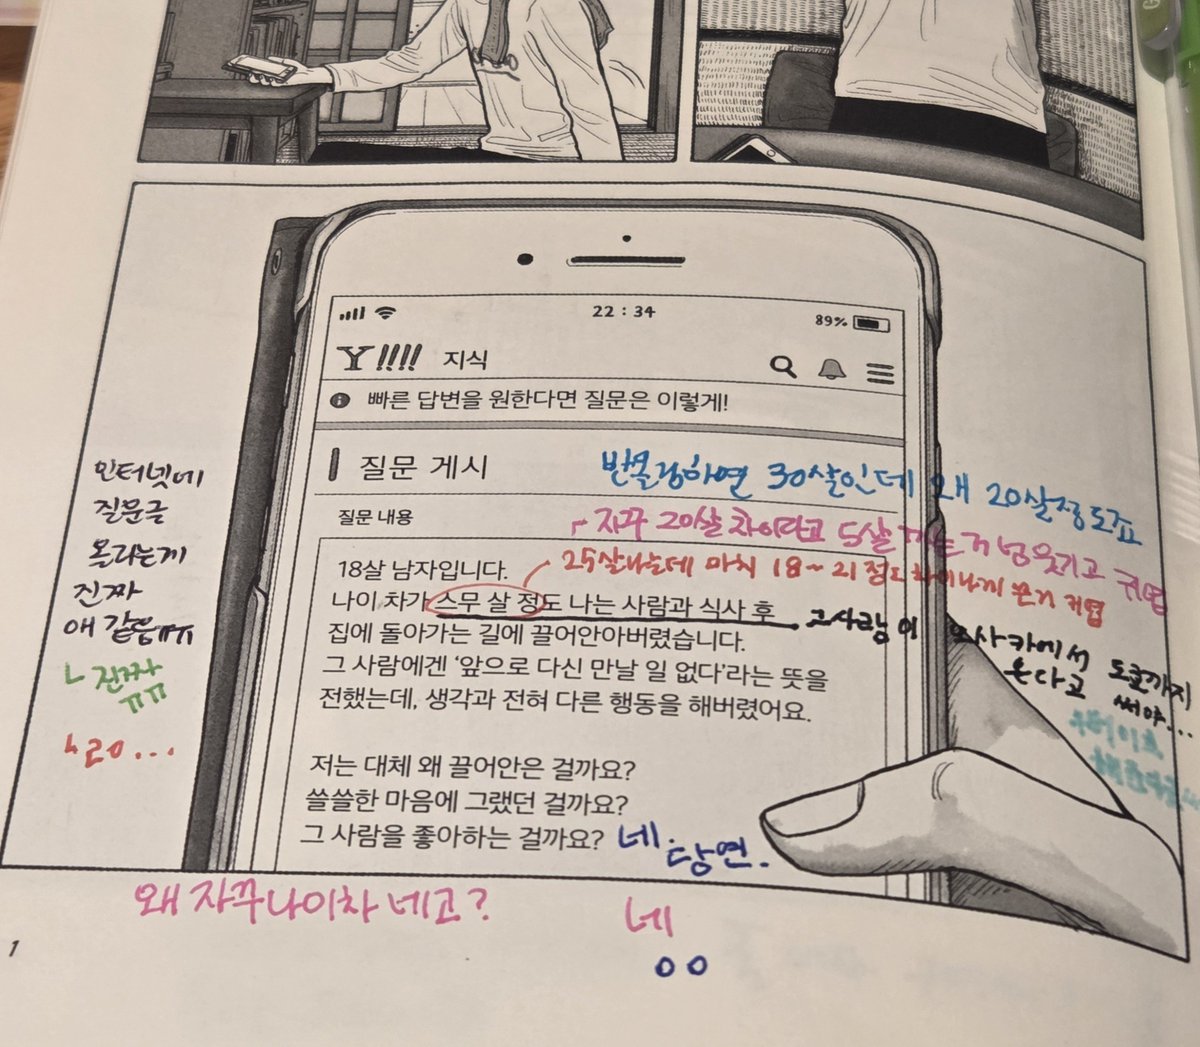 22 : 34
89%
Y!!!! 지식
빠른 답변을 원한다면 질문은 이렇게!
질문 게시
반올림하면 30살인데 왜 20살정도죠
질문 내용
자꾸 20살 차이라고 5살 너무 웃기고 귀엽
18살 남자입니다.
25살나는데 마치 18~21정도 차이나게 쓴거 귀엽
나이 차가 스무 살 정도 나는 사람과 식사 후
그사람이 오사카에서 도쿄까지
온다고 써야...
집에 돌아가는 길에 끌어안아버렸습니다.
그 사람에겐 ‘앞으로 다신 만날 일 없다’라는 뜻을
전했는데, 생각과 전혀 다른 행동을 해버렸어요.
저는 대체 왜 끌어안은 걸까요?
쓸쓸한 마음에 그랬던 걸까요?
그 사람을 좋아하는 걸까요?
네. 당연.
인터넷에
질문글
올리는게
진짜
애 같음ㅠㅠ
진짜
ㅠㅠ
왜 자꾸 나이차 네고?
네
ㅇㅇ
1